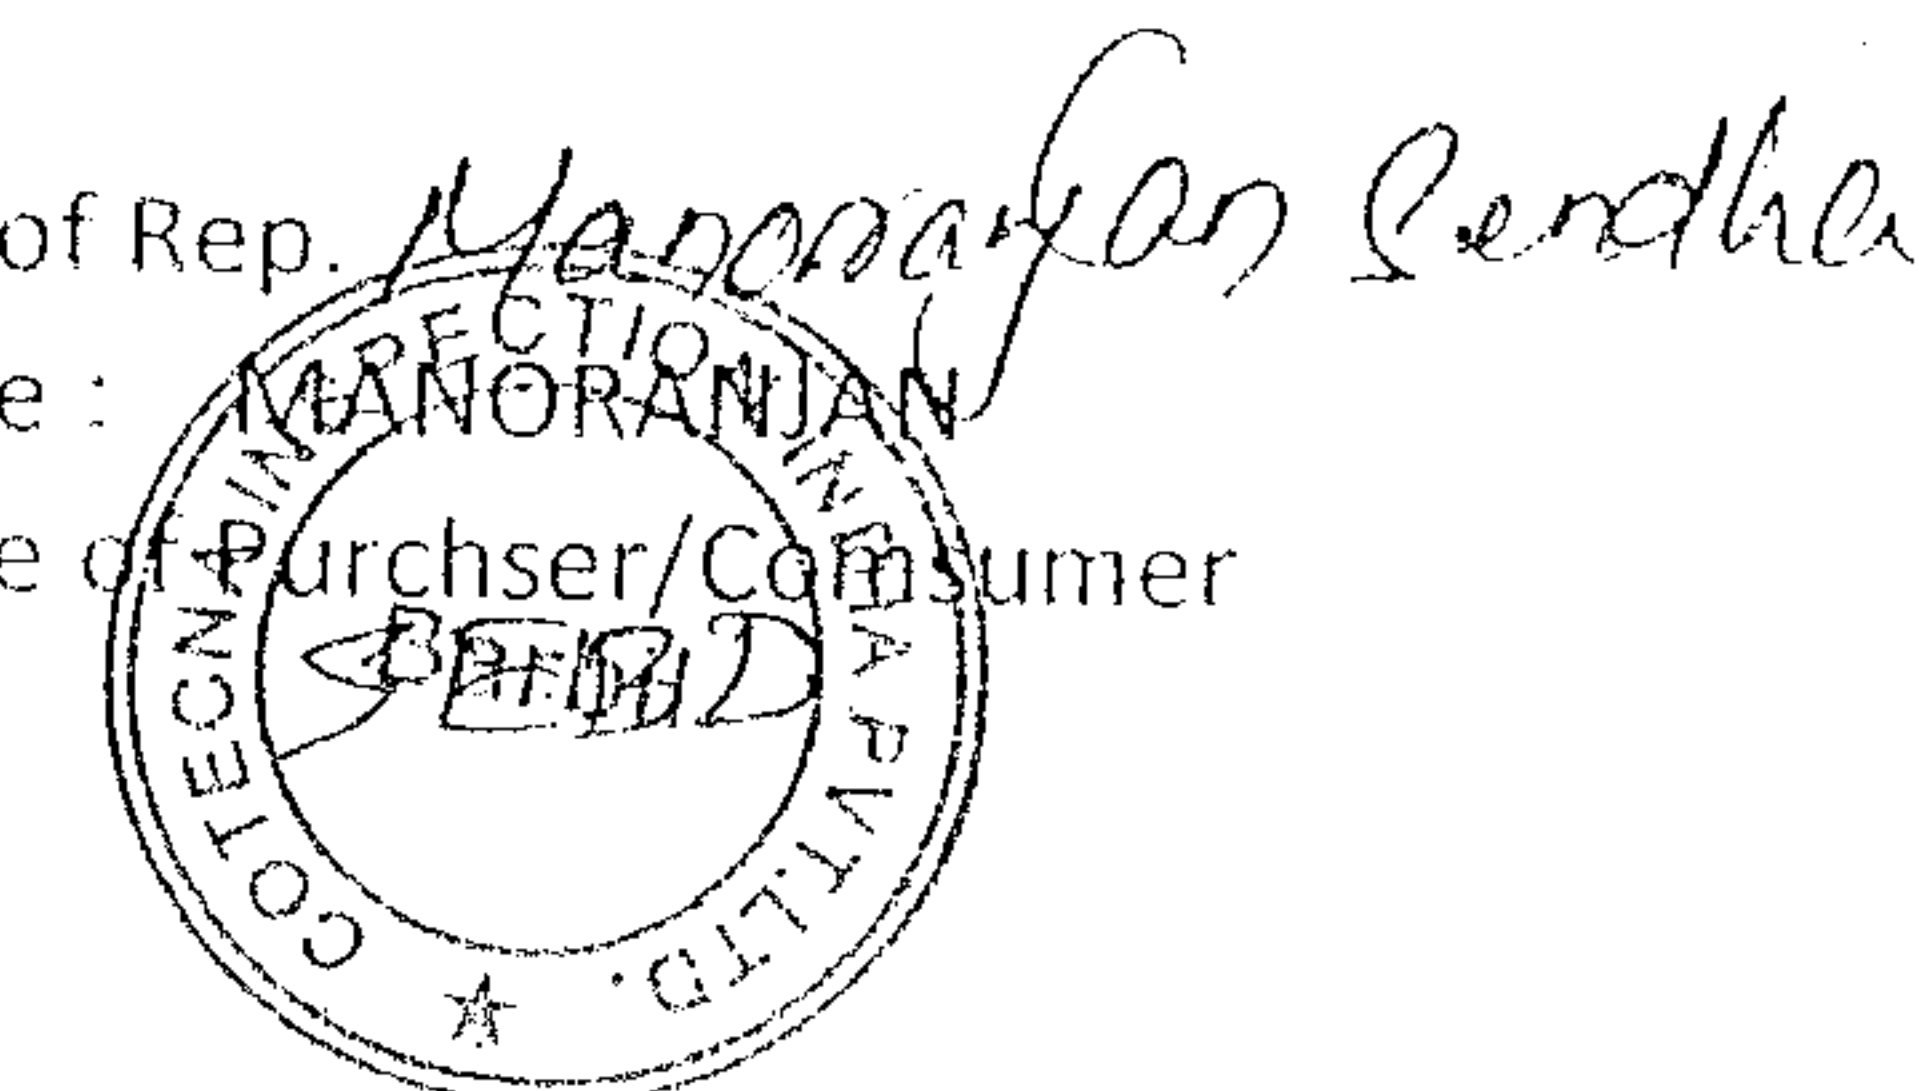 of Rep. Manoranjan Sendha
e : MANORANJAN
e of Purchser/Comsumer
COTECNA INSPECTION INDIA PVT.LTD.